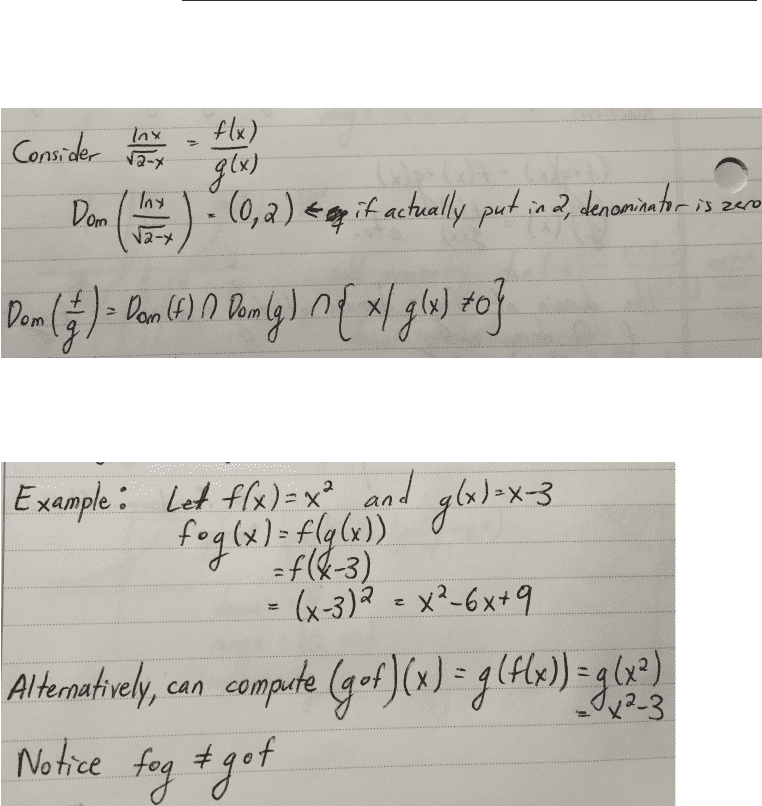 Consider lnx/√2-x = f(x)/g(x)
Dom (lnx/√2-x) = (0,2) ← if actually put in 2, denominator is zero
Dom (f/g) = Dom (f) ∩ Dom (g) ∩ { x | g(x) ≠0}
Example: Let f(x)=x² and g(x)=x-3
fog(x)=f(g(x))
=f(x-3)
= (x-3)² = x²-6x+9
Alternatively, can compute (gof)(x) = g(f(x)) = g(x²)
= x²-3
Notice fog ≠ gof